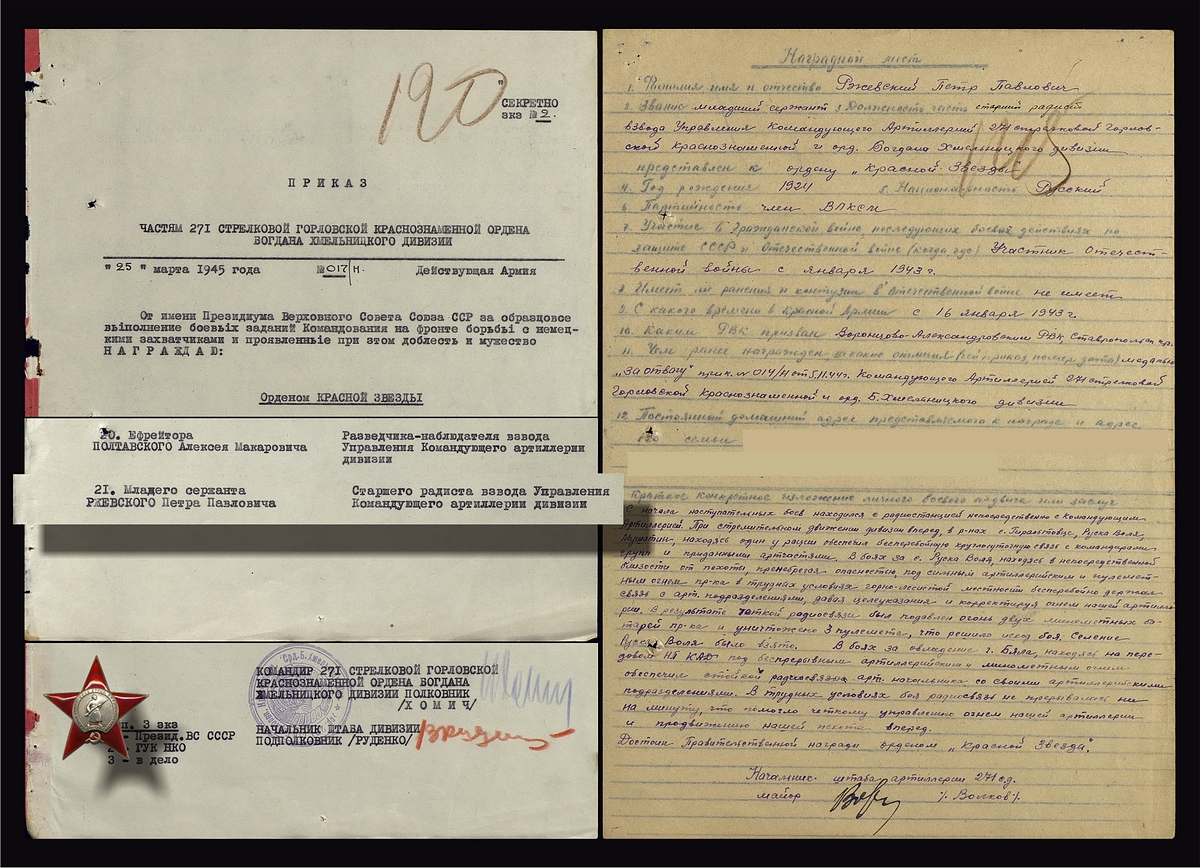 190
"СЕКРЕТНО
экз №2.
ПРИКАЗ
ЧАСТЯМ 271 СТРЕЛКОВОЙ ГОРЛОВСКОЙ КРАСНОЗНАМЕННОЙ ОРДЕНА
БОГДАНА ХМЕЛЬНИЦКОГО ДИВИЗИИ
"25" марта 1945 года №017/н. Действующая Армия
От имени Президиума Верховного Совета Союза ССР за образцовое
выполнение боевых заданий Командования на фронте борьбы с немец-
кими захватчиками и проявленные при этом доблесть и мужество
НАГРАЖДАЮ:
Орденом КРАСНОЙ ЗВЕЗДЫ
20. Ефрейтора Разведчика-наблюдателя взвода
ПОЛТАВСКОГО Алексея Макаровича Управления Командующего артиллерии
дивизии
21. Младшего сержанта Старшего радиста взвода Управления
РЖЕВСКОГО Петра Павловича Командующего артиллерии дивизии
КОМАНДИР 271 СТРЕЛКОВОЙ ГОРЛОВСКОЙ
КРАСНОЗНАМЕННОЙ ОРДЕНА БОГДАНА
ХМЕЛЬНИЦКОГО ДИВИЗИИ ПОЛКОВНИК
/ХОМИЧ/
НАЧАЛЬНИК ШТАБА ДИВИЗИИ
ПОДПОЛКОВНИК /РУДЕНКО/
п. 3 экз
- Презид.ВС СССР
2 - ГУК НКО
3 - в дело
Наградной лист
1. Фамилия имя и отчество Ржевский Петр Павлович
2. Звание младший сержант 3 Должность часть старший радист
взвода Управления Командующего Артиллерией 271 стрелковой Горлов-
ской Краснознаменной и орд. Богдана Хмельницкого дивизии
представлен к ордену „Красной Звезды"
4. Год рождения 1924 5. Национальность Русский
6. Партийность член ВЛКСМ
7. Участие в Гражданской войне, последующих боевых действиях по
защите СССР и Отечественной войне (когда, где) Участник Отечест-
венной войны с января 1943 г.
8. Имеет ли ранения и контузии в Отечественной войне не имеет
9. С какого времени в Красной Армии с 16 января 1943 г.
10. Каким РВК призван Воронцово-Александровским РВК Ставропольск кр.
11. Чем ранее награжден за какие отличия медалью
„За отвагу" прик. № 014/н от 5.11.44г. Командующего Артиллерией 271 стрелковой
Горловской Краснознаменной и орд. Б. Хмельницкого дивизии
12. Постоянный домашний адрес представляемого к награде и адрес
его семьи
Краткое конкретное изложение личного боевого подвига или заслуг
С начала наступательных боев находился с радиостанцией непосредственно с Командующим
Артиллерией. При стремительном движении дивизии вперед, в р-нах с. Гиральтовце, Руска Воля,
находясь один у рации обеспечил бесперебойную круглосуточную связь с командирами
групп и приданными артчастями. В боях за с. Руска Воля, находясь в непосредственной
близости от пехоты, пренебрегая опасностью, под сильным артиллерийским и пулемет-
ным огнем пр-ка в трудных условиях горно-лесистой местности бесперебойно держал
связь с арт. подразделениями, давая целеуказания и корректируя огнем нашей артилле-
рии. В результате четкой радиосвязи был подавлен огонь двух минометных ба-
тарей пр-ка и уничтожено 3 пулемета, что решило исход боя. Селение
Руска Воля было взято. В боях за овладение г. Бяла, находясь на пере-
довом НП КАД под беспрерывным артиллерийским и минометным огнем
обеспечил стойкой радиосвязью арт. начальника со своими артиллерийскими
подразделениями. В трудных условиях боя радиосвязь не прерывалась ни
на минуту, что помогло четкому управлению огнем нашей артиллерии
и продвижению нашей пехоты вперед.
Достоин Правительственной награды орденом „Красной Звезды".
Начальник штаба артиллерии 271 сд.
майор /Волков/.